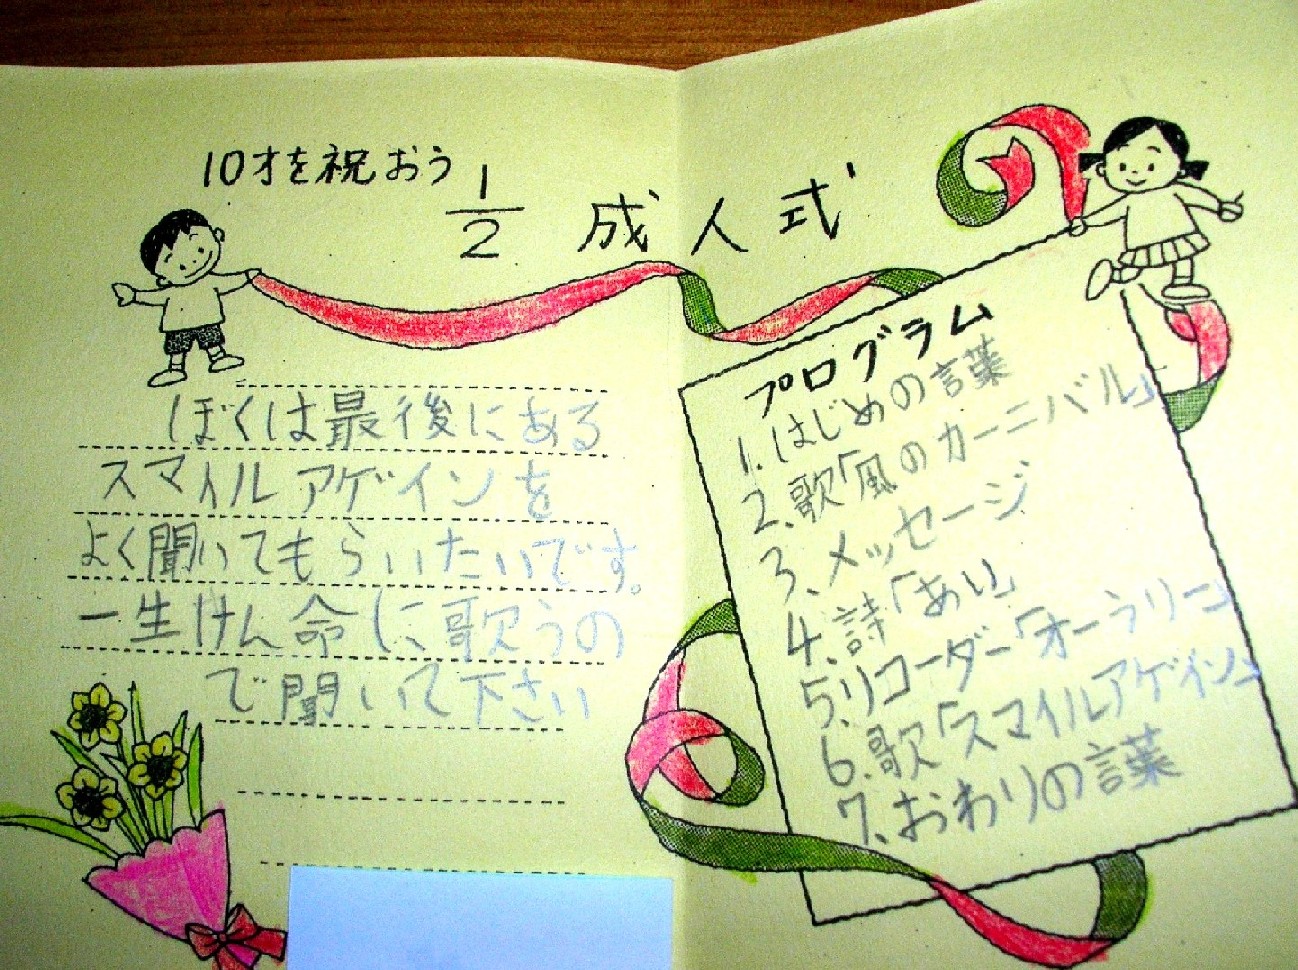 10才を祝おう
1/2 成人式
ぼくは最後にある
スマイルアゲインを
よく聞いてもらいたいです。
一生けん命に歌うの
で聞いて下さい
プログラム
1.はじめの言葉
2、歌「風のカーニバル」
3、メッセージ
4、詩「あい」
5、リコーダー「オーラリー」
6.歌「スマイルアゲイン」
7、おわりの言葉